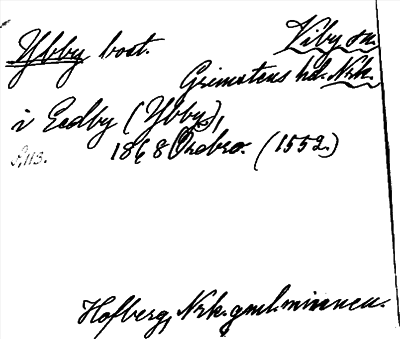 Ybby bost. Viby sn.
Grimstens hd. Nrk.
i Eedby (Ybby),
1868 Örebro. (1552.)
S. 113.
Hofberg, Nrk. gml. minnen.